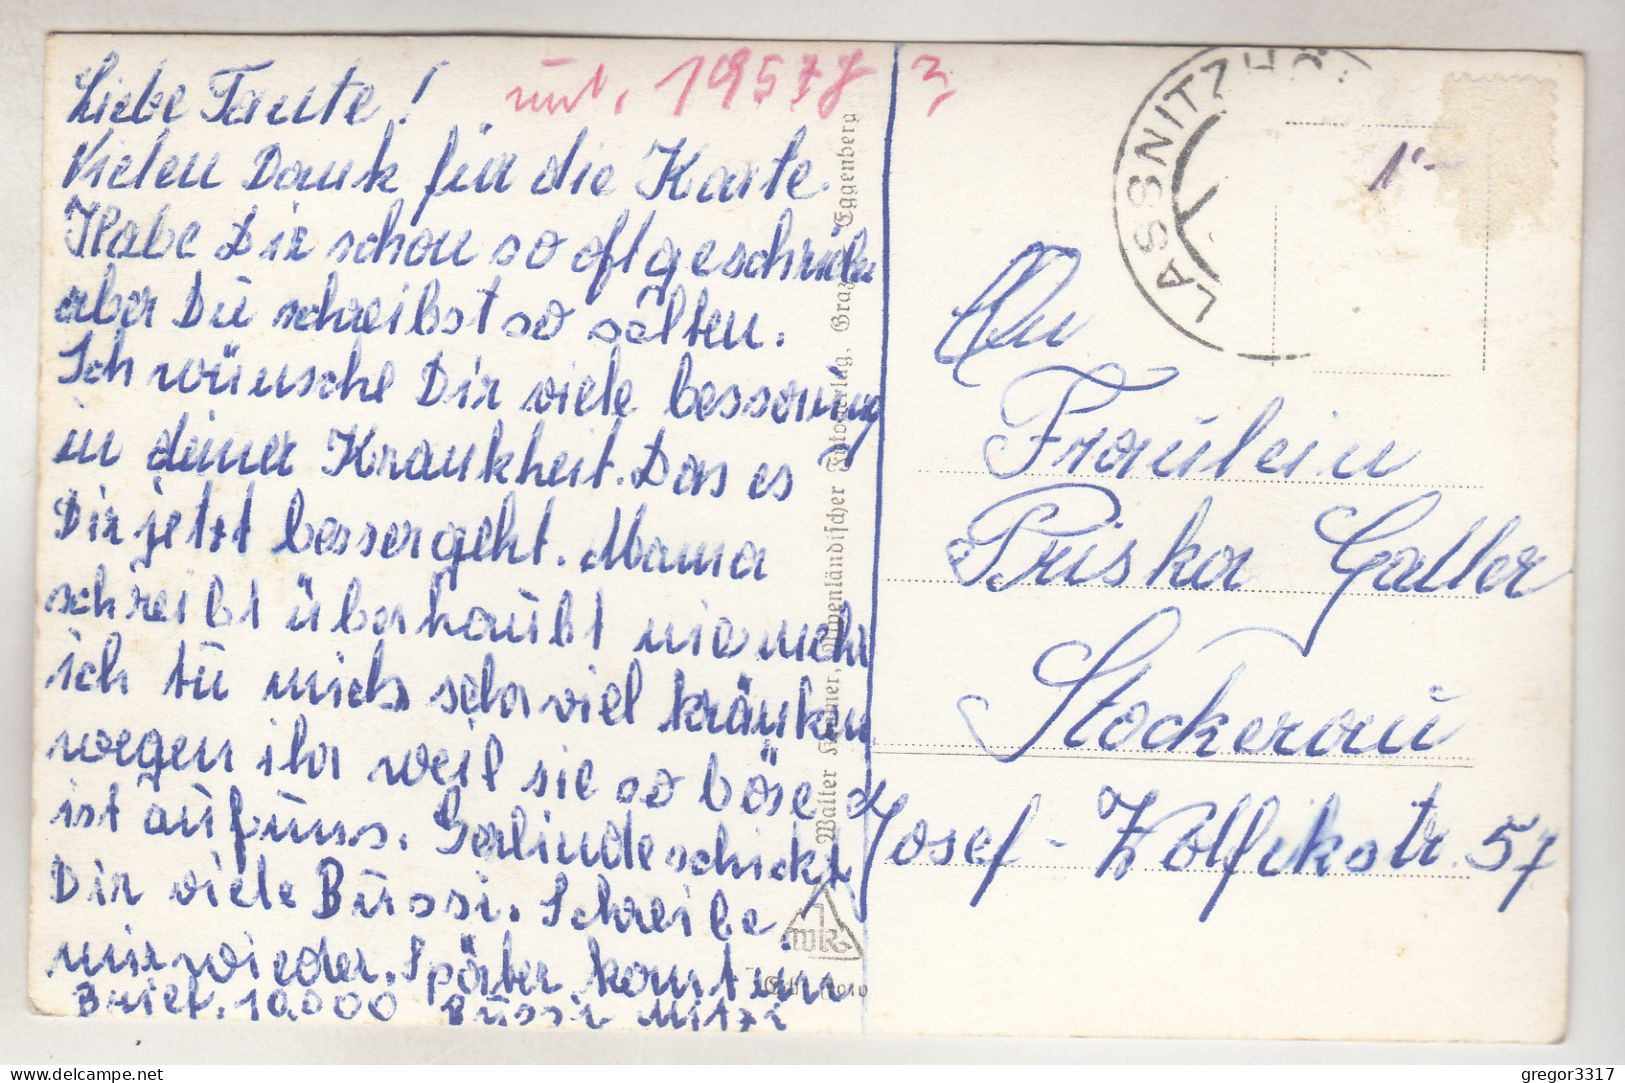 Liebe Tante!
Vielen Dank für die Karte.
Habe Dir schon so oft geschrieben
aber Du schreibst so sälten.
Ich wünsche Dir viele bessorung
in deiner Krankheit. Das es
Dir jetzt bessergeht. Mama
schreibt überhaubt nie mehr
ich tu mich sehr viel kränken
wegen ihr weil sie so böse
ist auf uns. Gerlinde schickt
Dir viele Bussi. Schreibe
mir wieder. Später komt ein
Brief. 10,000 Bussi Mitzi
19578 3
Walter Kramer, Alpenländischer Fotoverlag, Graz-Eggenberg
wk
LASSNITZHÖ
1'-
An
Fräulein
Priska Galler
Stockerau
Josef-Wolfikstr 57
gregor3317